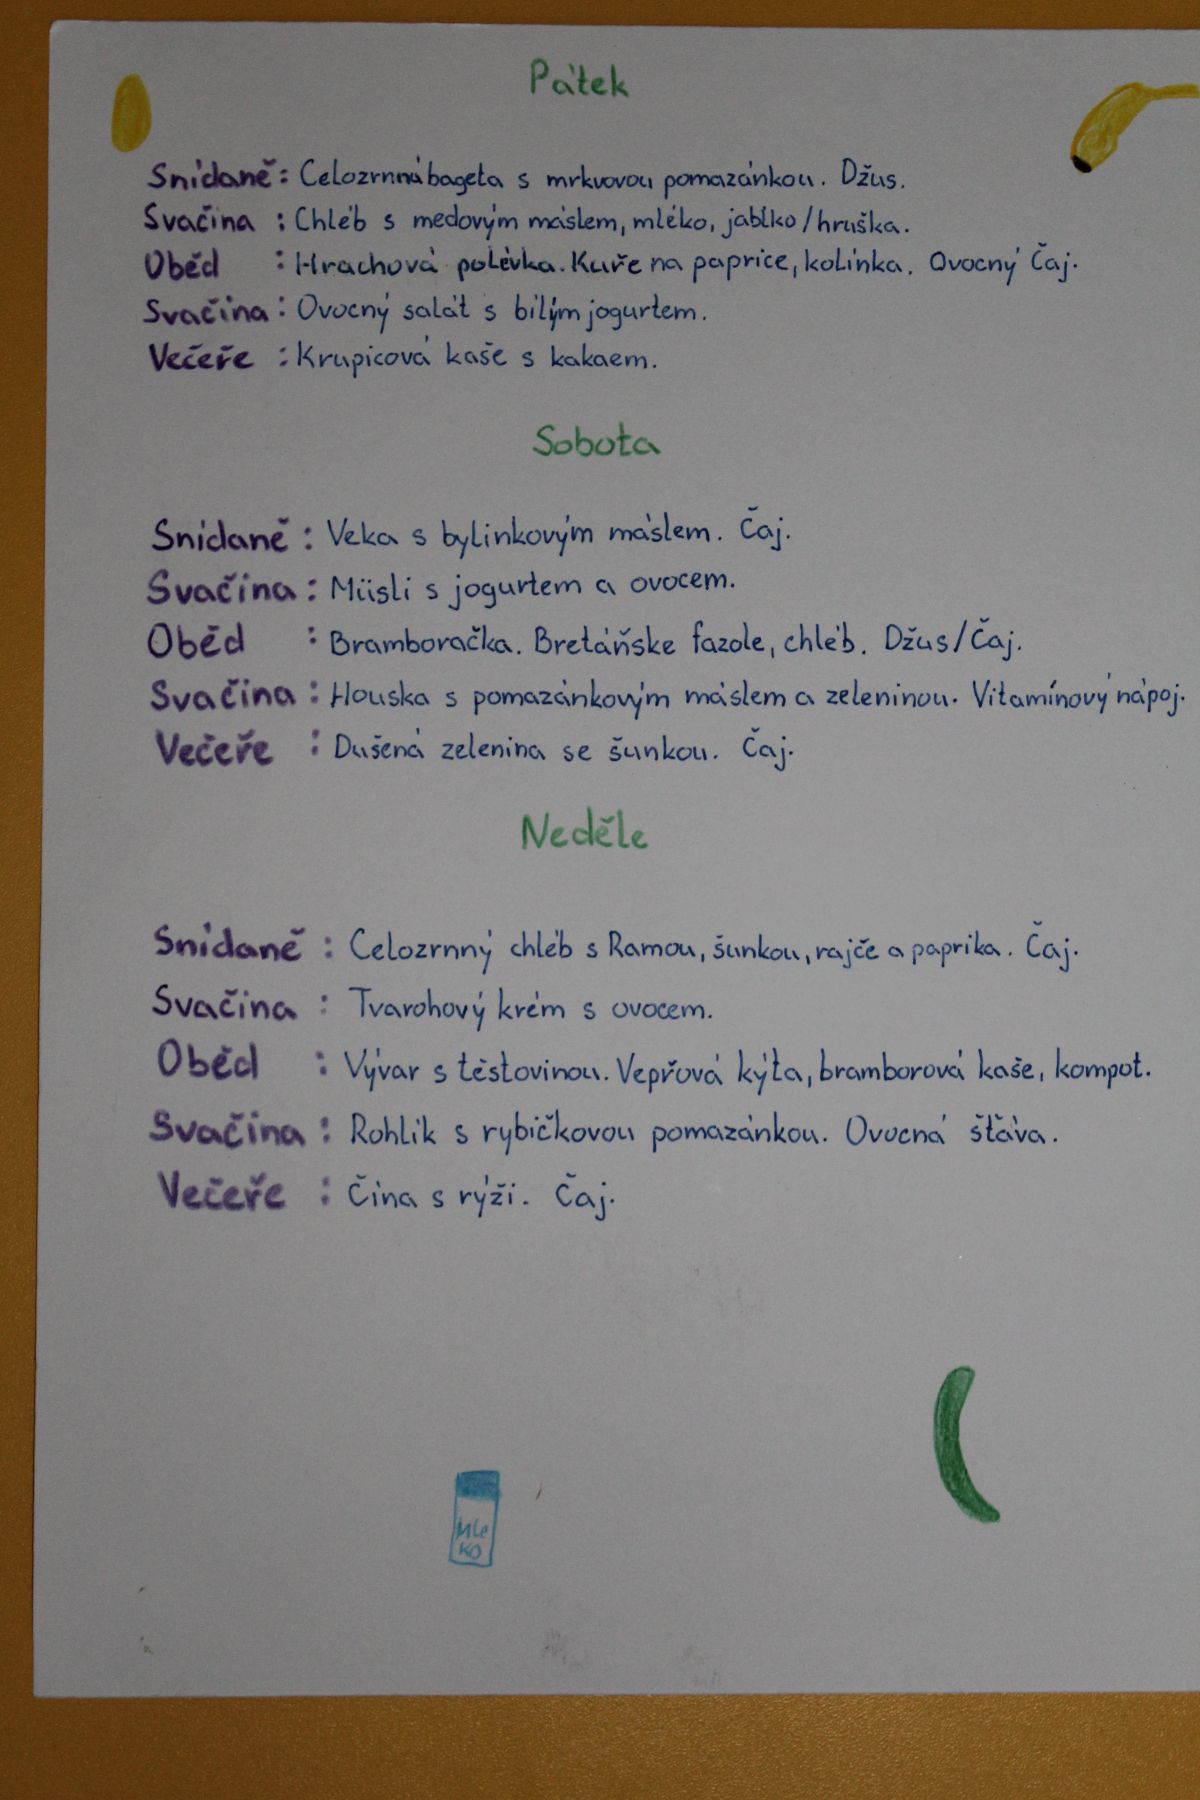 Pátek
Snídaně: Celozrnná bageta s mrkvovou pomazánkou. Džus.
Svačina : Chléb s medovým máslem, mléko, jablko/hruška.
Oběd : Hrachová polévka. Kuře na paprice, kolínka. Ovocný Čaj.
Svačina : Ovocný salát s bílým jogurtem.
Večeře : Krupicová kaše s kakaem.
Sobota
Snídaně : Veka s bylinkovým máslem. Čaj.
Svačina : Müsli s jogurtem a ovocem.
Oběd : Bramboračka. Bretáňske fazole, chléb. Džus/Čaj.
Svačina : Houska s pomazánkovým máslem a zeleninou. Vitamínový nápoj.
Večeře : Dušená zelenina se šunkou. Čaj.
Neděle
Snídaně : Celozrnný chléb s Ramou, šunkou, rajče a paprika. Čaj.
Svačina : Tvarohový krém s ovocem.
Oběd : Vývar s těstovinou. Vepřová kýta, bramborová kaše, kompot.
Svačina : Rohlík s rybičkovou pomazánkou. Ovocná šťáva.
Večeře : Čína s rýži. Čaj.
Mle
KO